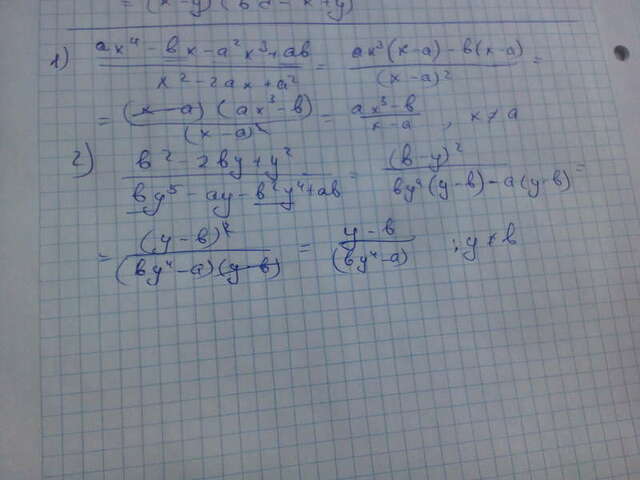 = (x-y)(
1) (ax⁴ - bx - a²x³ + ab)/(x² - 2ax + a²) = (ax³(x-a) - b(x-a))/(x-a)² =
= ((x-a)(ax³-b))/(x-a)² = (ax³-b)/(x-a), x ≠ a
2) (b² - 2by + y²)/(by⁵ - ay - b²y⁴ + ab) = (b-y)²/(by⁴(y-b) - a(y-b)) =
= (y-b)²/((by⁴-a)(y-b)) = (y-b)/(by⁴-a) ; y ≠ b